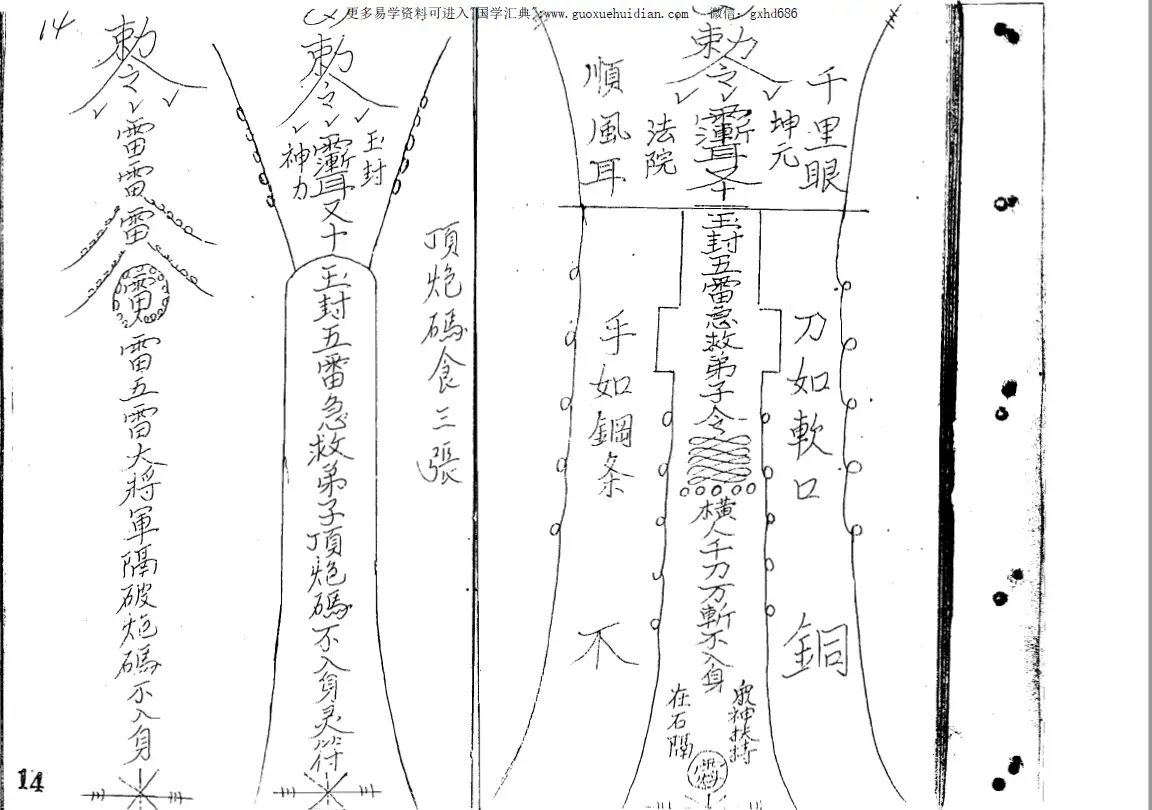 更多易学资料可进入“国学汇典”：www.guoxuehuidian.com 微信：gxhd686
14
勅令
雷雷雷
雷五雷大將軍隔破炮碼不入身
勅令
玉封
神力
又十
玉封五雷急救弟子頂炮碼不入身灵符
頂炮碼食三張
勅令
千里眼
坤元
法院
順風耳
玉封五雷急救弟子令
橫人千刀万斬不入身
刀如軟口
手如鋼条
銅
不
衆神扶持
在石隔
14